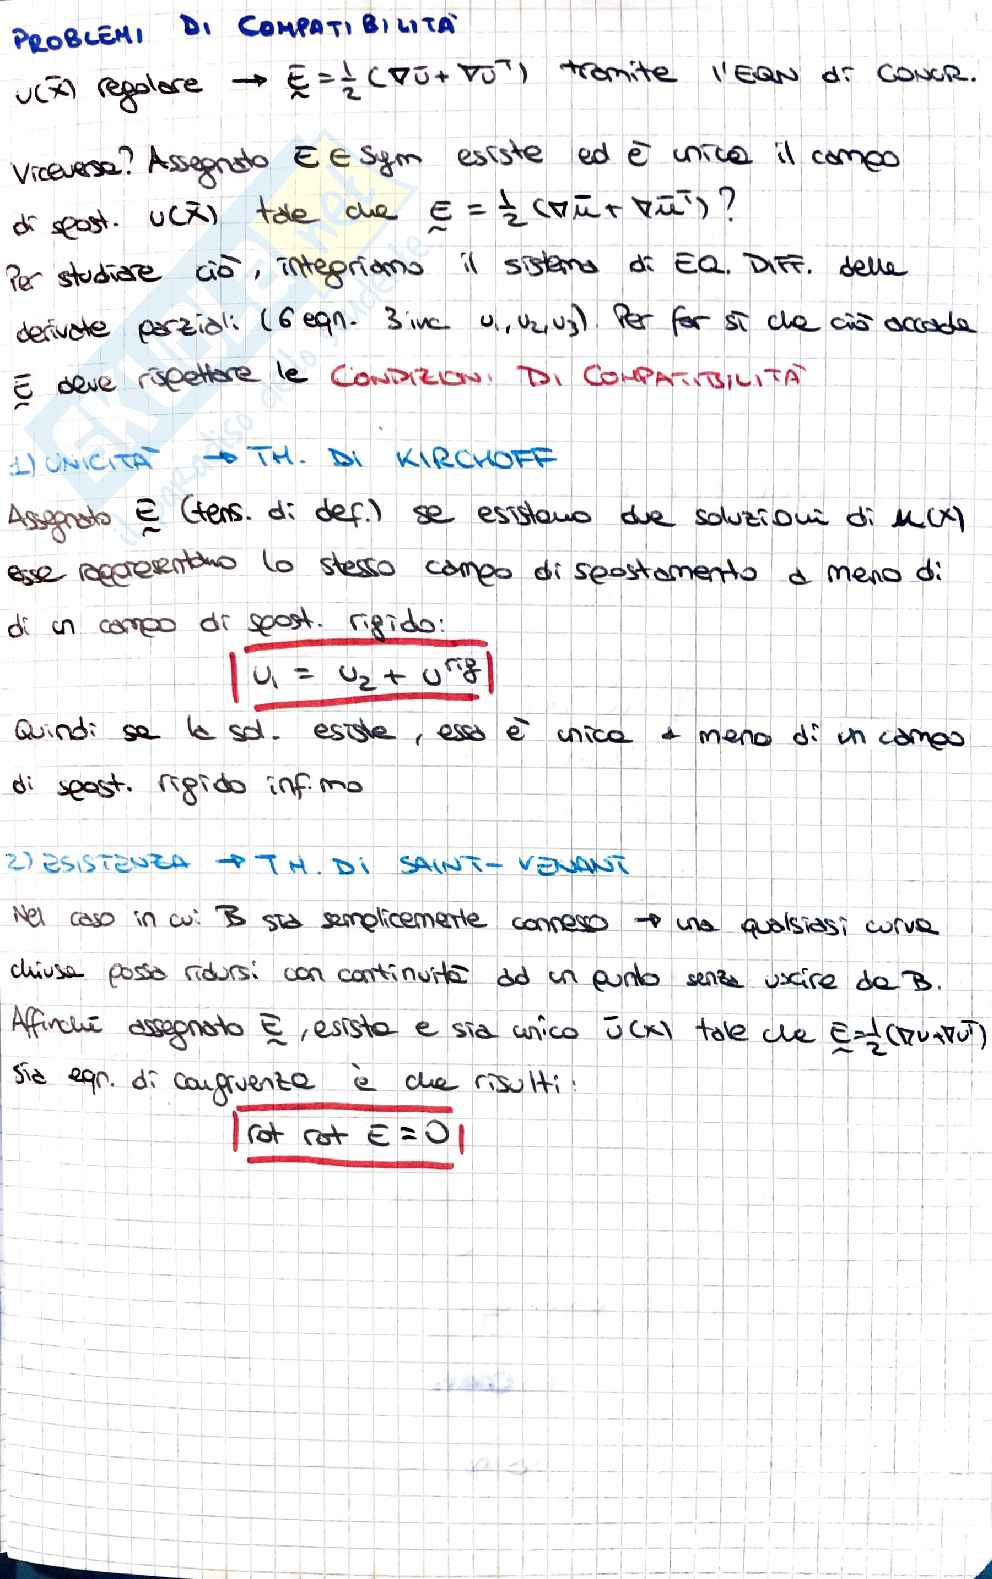 PROBLEMI DI COMPATIBILITÀ
u(x̄) regolare → E̲ = ½ (∇ū + ∇ūᵀ) tramite l'EQN di CONGR.
Viceversa? Assegnato E ∈ Sym esiste ed è unico il campo
di spost. u(x̄) tale che E̲ = ½ (∇ū + ∇ūᵀ)?
Per studiare ciò, integriamo il sistema di EQ. DIFF. delle
derivate parziali (6 eqn. 3 inc. u₁, u₂, u₃). Per far sì che ciò accada
E̲ deve rispettare le CONDIZIONI DI COMPATIBILITÀ
1) UNICITÀ → TH. DI KIRCHOFF
Assegnato E̲ (tens. di def.) se esistono due soluzioni di u(x)
esse rappresentano lo stesso campo di spostamento a meno di
di un campo di spost. rigido:
u₁ = u₂ + u^rig
Quindi se la sol. esiste, essa è unica a meno di un campo
di spost. rigido infimo
2) ESISTENZA → TH. DI SAINT-VENANT
Nel caso in cui B sia semplicemente connesso → una qualsiasi curva
chiusa possa ridursi con continuità ad un punto senza uscire da B.
Affinché assegnato E̲, esista e sia unico ū(x) tale che E̲ = ½ (∇u + ∇uᵀ)
sia eqn. di congruenza è che risulti:
rot rot E = 0
SKUOLA.net
il paradiso dello studente